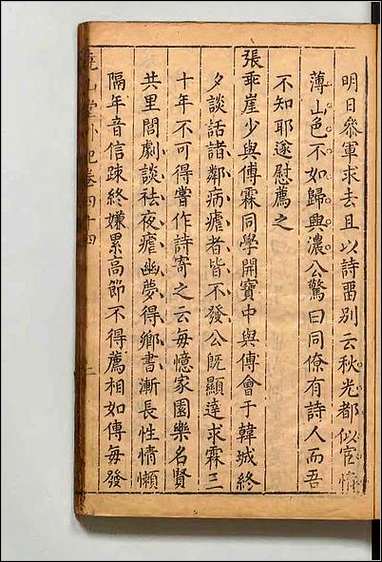 明日叅軍求去且以詩畱別云秋光都似宦情
薄山色不如歸興濃公驚曰同僚有詩人而吾
不知耶遂慰薦之
張乖崖少與傅霖同學開寶中與傅會于韓城終
夕談話諸鄰病瘧者皆不發公旣顯達求霖三
十年不可得嘗作詩寄之云每憶家園樂名賢
共里閭劇談祛夜瘧幽夢得鄉書漸長性情頼
隔年音信踈終嫌累高節不得薦相如傅每發
堯山堂外紀卷四十四
二